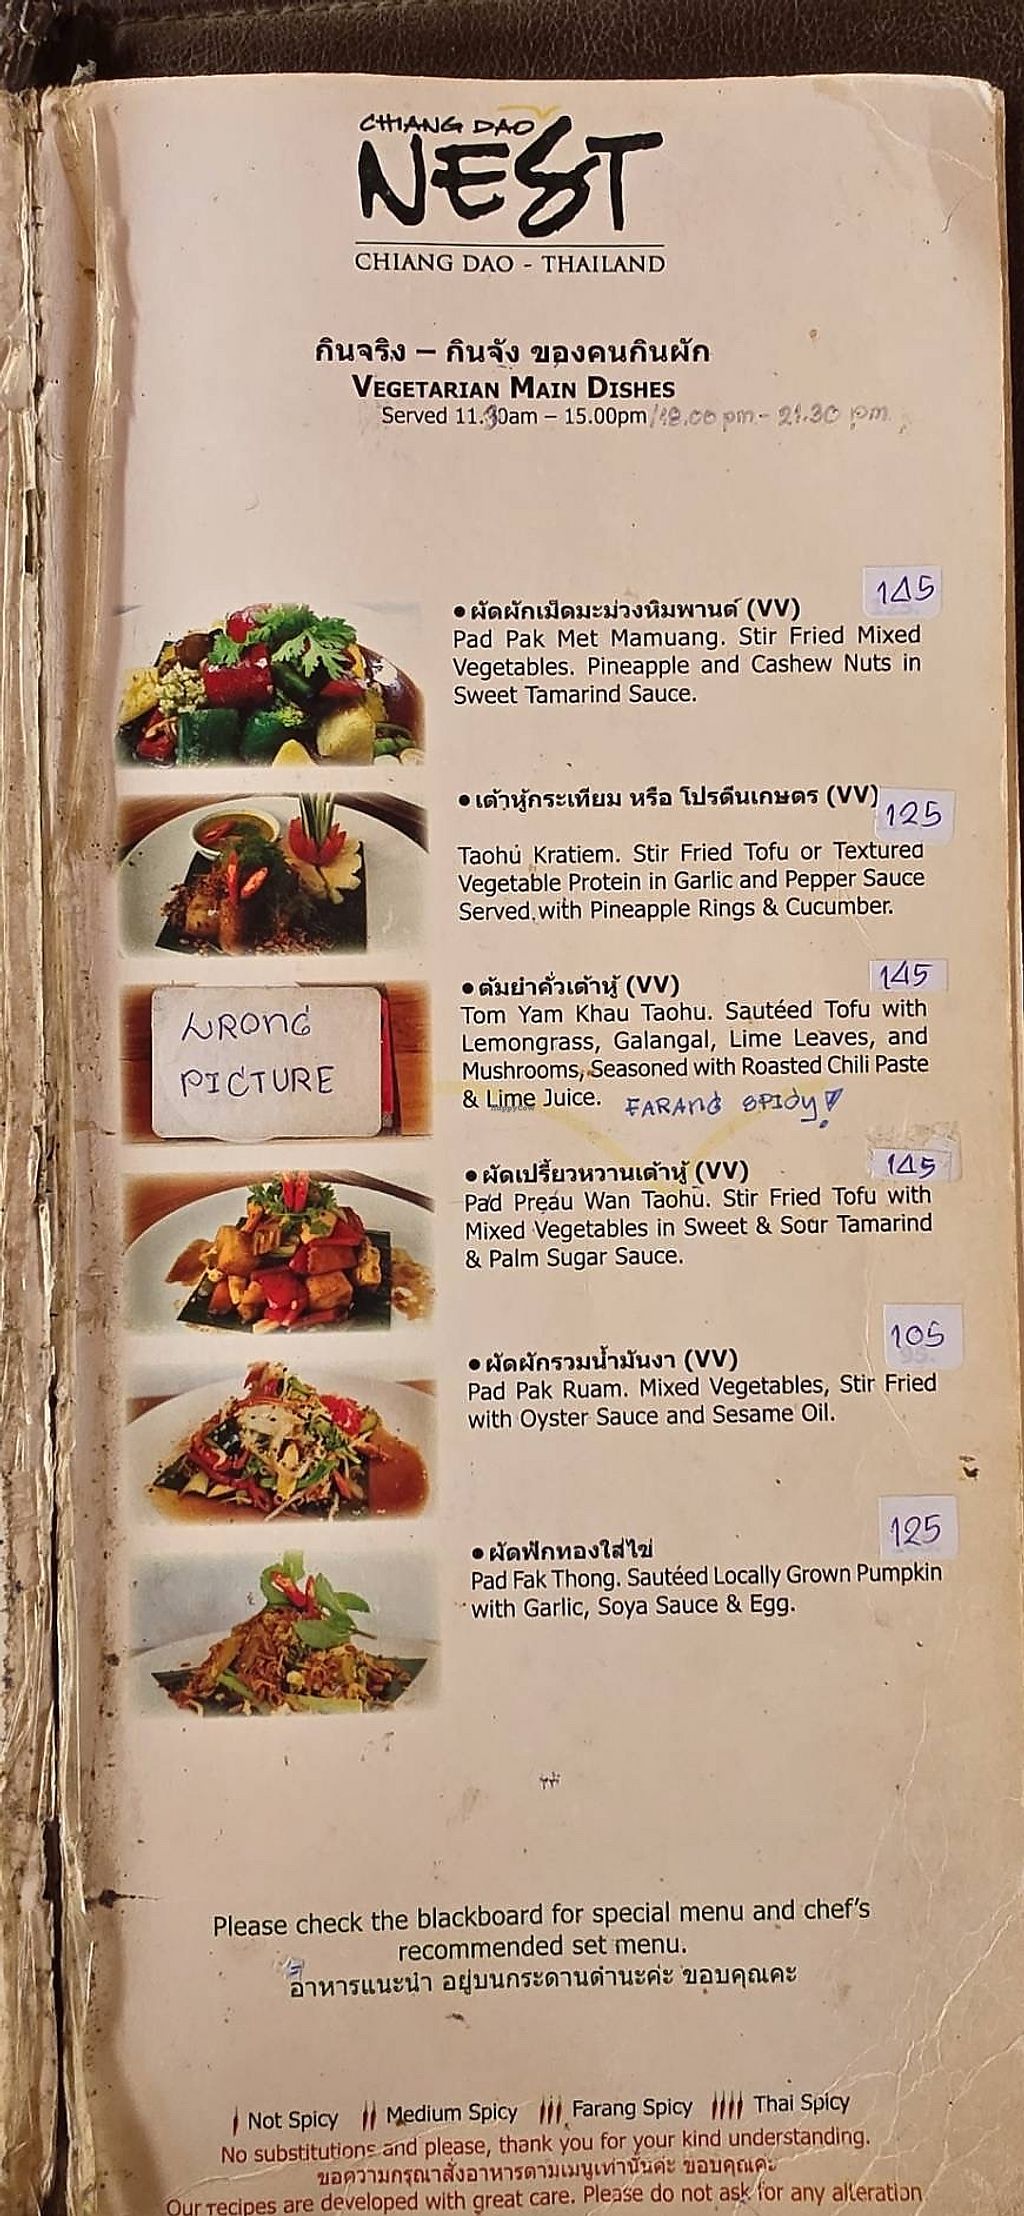 CHIANG DAO
NEST
CHIANG DAO - THAILAND
กินจริง – กินจัง ของคนกินผัก
VEGETARIAN MAIN DISHES
Served 11.30am – 15.00pm/18.00 pm - 21.30 pm
145
● ผัดผักเม็ดมะม่วงหิมพานต์ (VV)
Pad Pak Met Mamuang. Stir Fried Mixed
Vegetables. Pineapple and Cashew Nuts in
Sweet Tamarind Sauce.
● เต้าหู้กระเทียม หรือ โปรตีนเกษตร (VV)
125
Taohu Kratiem. Stir Fried Tofu or Textured
Vegetable Protein in Garlic and Pepper Sauce
Served with Pineapple Rings & Cucumber.
145
● ต้มยำคั่วเต้าหู้ (VV)
Tom Yam Khau Taohu. Sautéed Tofu with
Lemongrass, Galangal, Lime Leaves, and
Mushrooms, Seasoned with Roasted Chili Paste
& Lime Juice. FARANG SPICY!
WRONG
PICTURE
HappyCow
145
● ผัดเปรี้ยวหวานเต้าหู้ (VV)
Pad Preau Wan Taohu. Stir Fried Tofu with
Mixed Vegetables in Sweet & Sour Tamarind
& Palm Sugar Sauce.
105
● ผัดผักรวมน้ำมันงา (VV)
Pad Pak Ruam. Mixed Vegetables, Stir Fried
with Oyster Sauce and Sesame Oil.
125
● ผัดฟักทองใส่ไข่
Pad Fak Thong. Sautéed Locally Grown Pumpkin
with Garlic, Soya Sauce & Egg.
Please check the blackboard for special menu and chef's
recommended set menu.
อาหารแนะนำ อยู่บนกระดานดำนะค่ะ ขอบคุณคะ
Not Spicy Medium Spicy Farang Spicy Thai Spicy
No substitutions and please, thank you for your kind understanding.
ขอความกรุณาสั่งอาหารตามเมนูเท่านั้นค่ะ ขอบคุณค่ะ
Our recipes are developed with great care. Please do not ask for any alteration